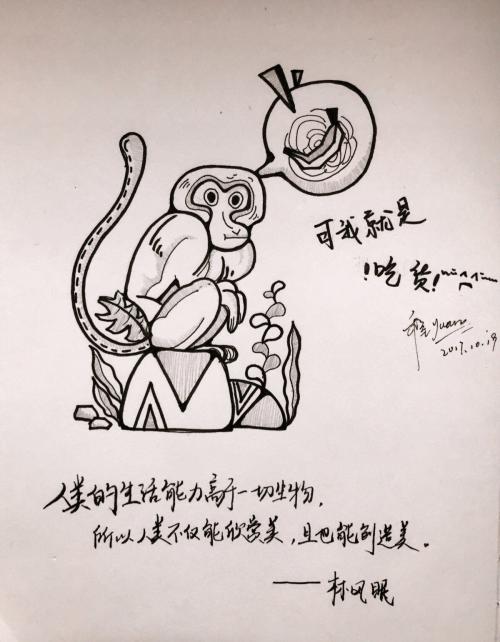 可我就是
!吃货!
yuan
2017.10.19
人类的生活能力高于一切生物,
所以人类不仅能欣赏美,且也能创造美。
——林风眠